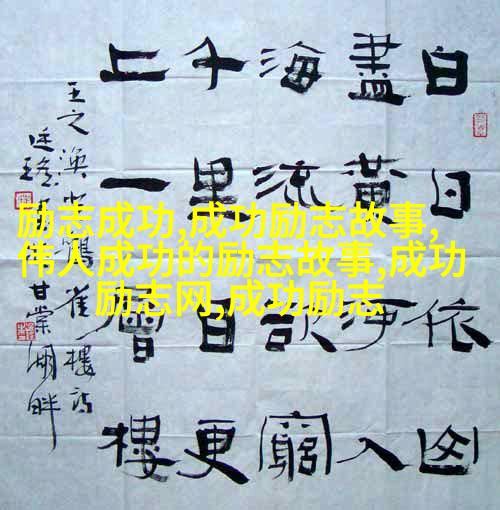 白日依山
盡黄河入
海流欲窮
千里目更
上一層樓
王之渙 鸛雀樓詩
甘棠湖畔
励志成功,成功励志故事,
伟人成功的励志故事,成功
励志网,成功励志